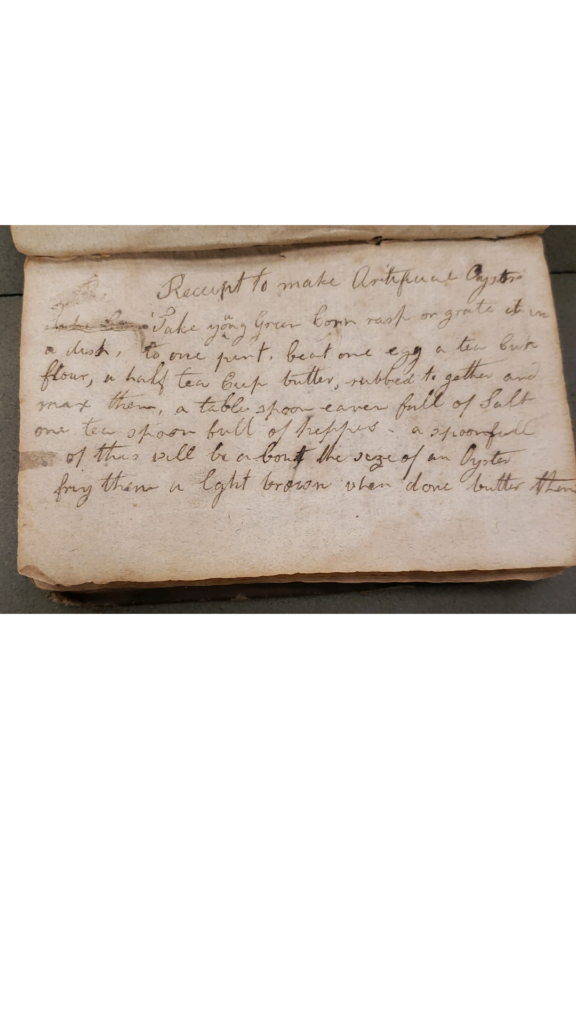 Receipt to make Artificial Oyster
Take yong Green Corn rasp or grate it in
a dish, to one pint. beat one egg a tea Cup
flour, a half tea Cup butter, rubbed to gether and
max them, a table spoon eaven full of Salt
one tea spoon full of peppes - a spoonfull
of this will be about the size of an Oyster
fry them a lght brown when done butter them